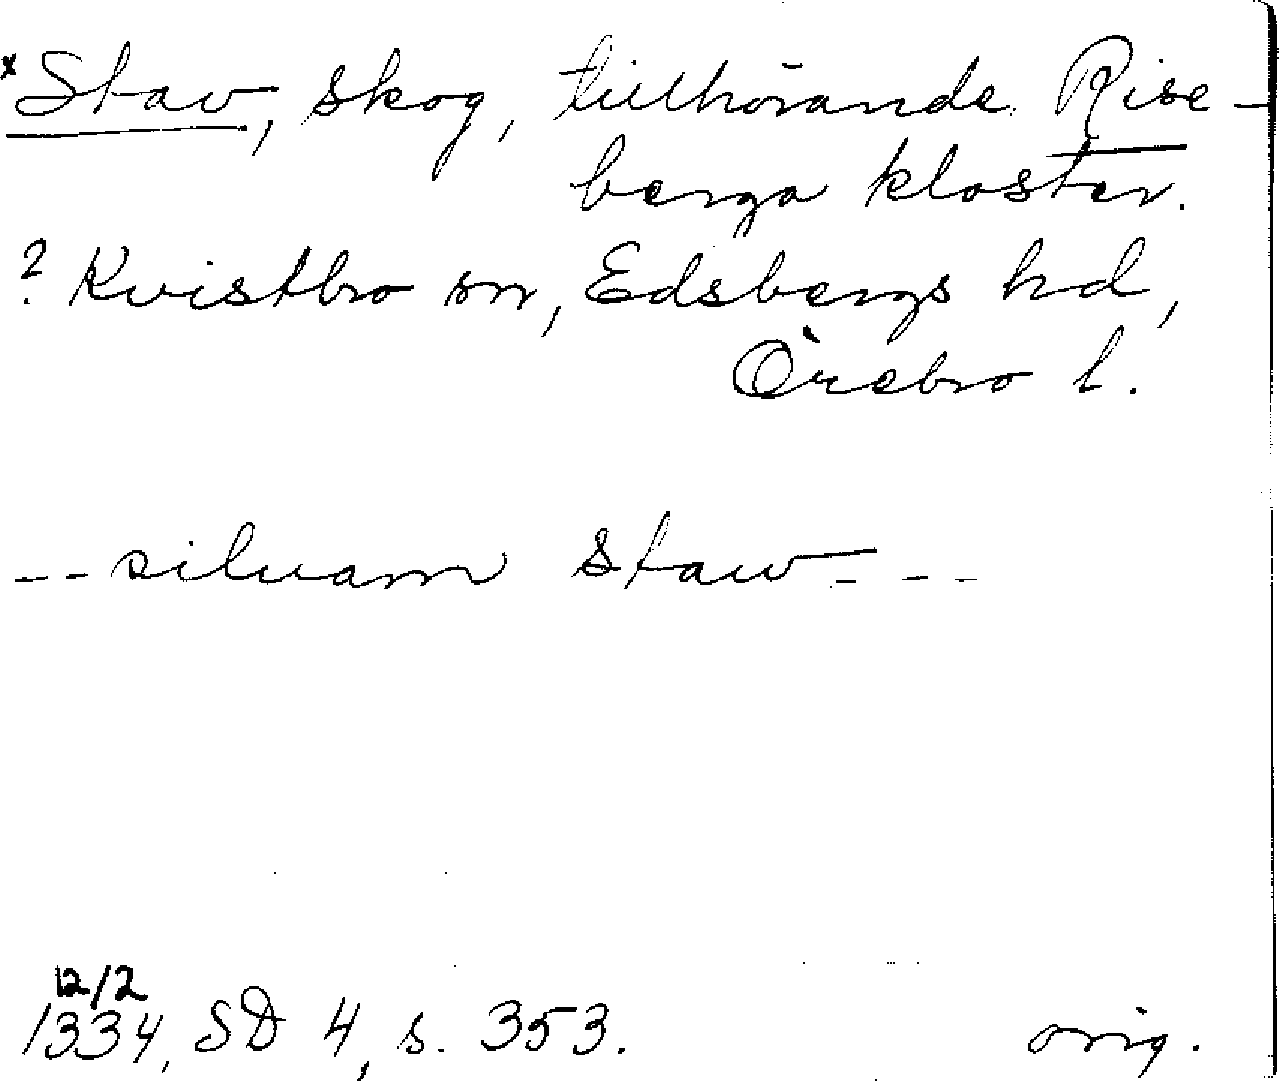 *Stav, skog, tillhörande Rise-
berga kloster.
? Kvistbro sn, Edsbergs hd,
Örebro l.
--siluam staw---
12/2
1334, SD 4, s. 353. orig.